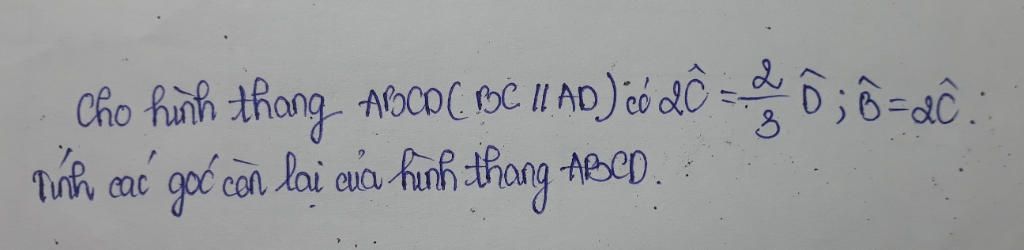 Cho hình thang ABCD (BC // AD) có 2Ĉ = 2/3 D̂ ; B̂ = 2Ĉ.
Tính các góc còn lại của hình thang ABCD.